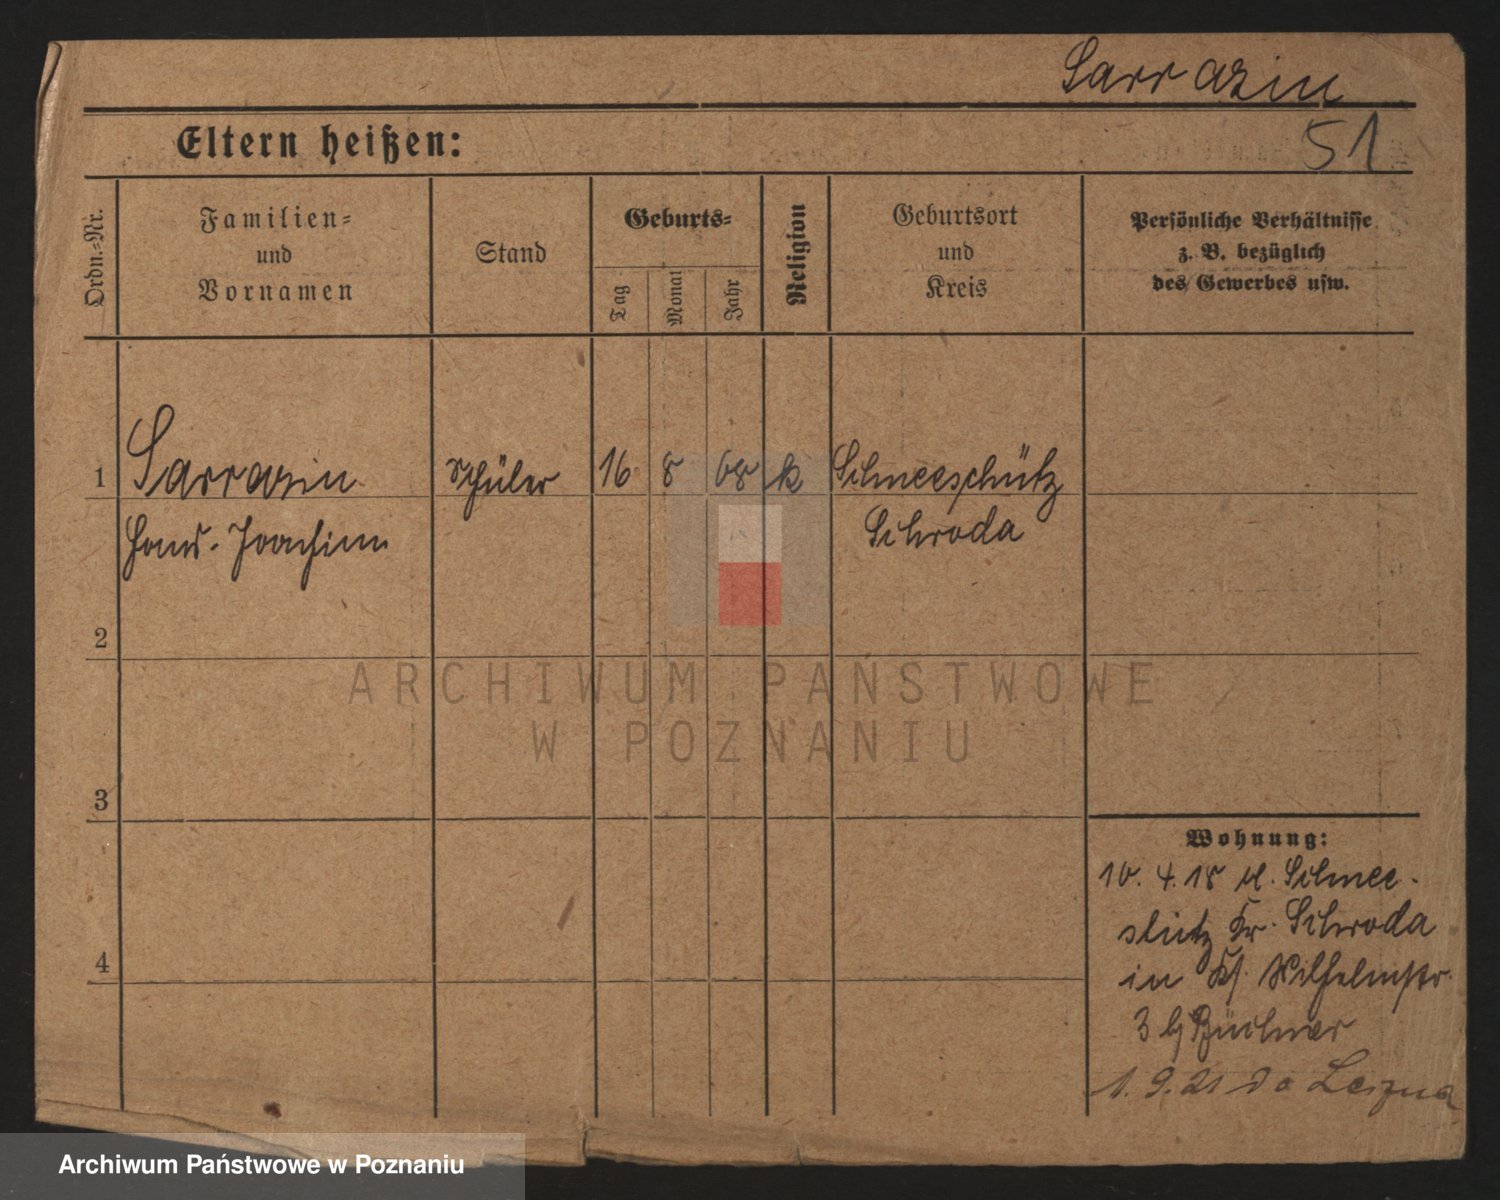 Sarrazin
51
Eltern heißen:
Ordn.-Nr.
Familien-
und
Vornamen
Stand
Geburts-
Tag
Monat
Jahr
Religion
Geburtsort
und
Kreis
Persönliche Verhältnisse
z. B. bezüglich
des Gewerbes usw.
1 Sarrazin Schüler 16 8 08 k Schneeschütz
Hans-Joachim Schroda
2
3
4
Wohnung:
10. 4. 18 v. Schnee-
schütz Kr. Schroda
in Wilhelmstr.
3 b/ Büchner
1. 9. 21 do Leszna
ARCHIWUM PAŃSTWOWE
W POZNANIU
Archiwum Państwowe w Poznaniu